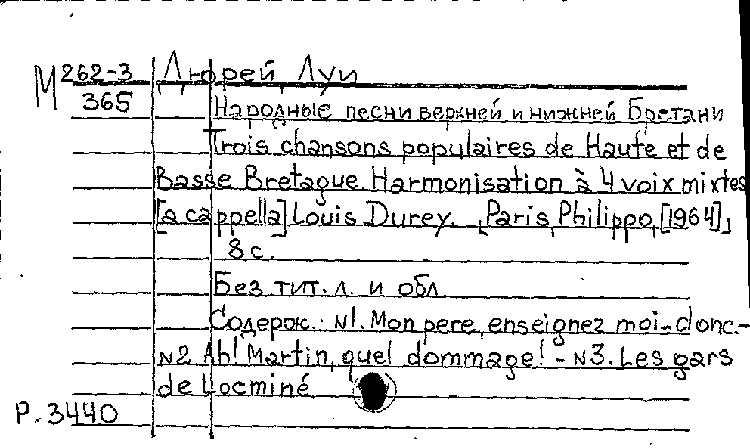 М 262-3 Дюрей, Луи
365 Народные песни верхней и нижней Бретани
Trois chansons populaires de Haute et de
Basse Bretague. Harmonisation à 4 voix mixtes
[a cappella] Louis Durey. [Paris, Philippo, [1964],
8 с.
Без тит. л. и обл
Содерж.: №1. Mon pere, enseignez moi-donc.-
№2 Ah! Martin, quel dommage! - №3. Les gars
de Locminé
Р. 3440